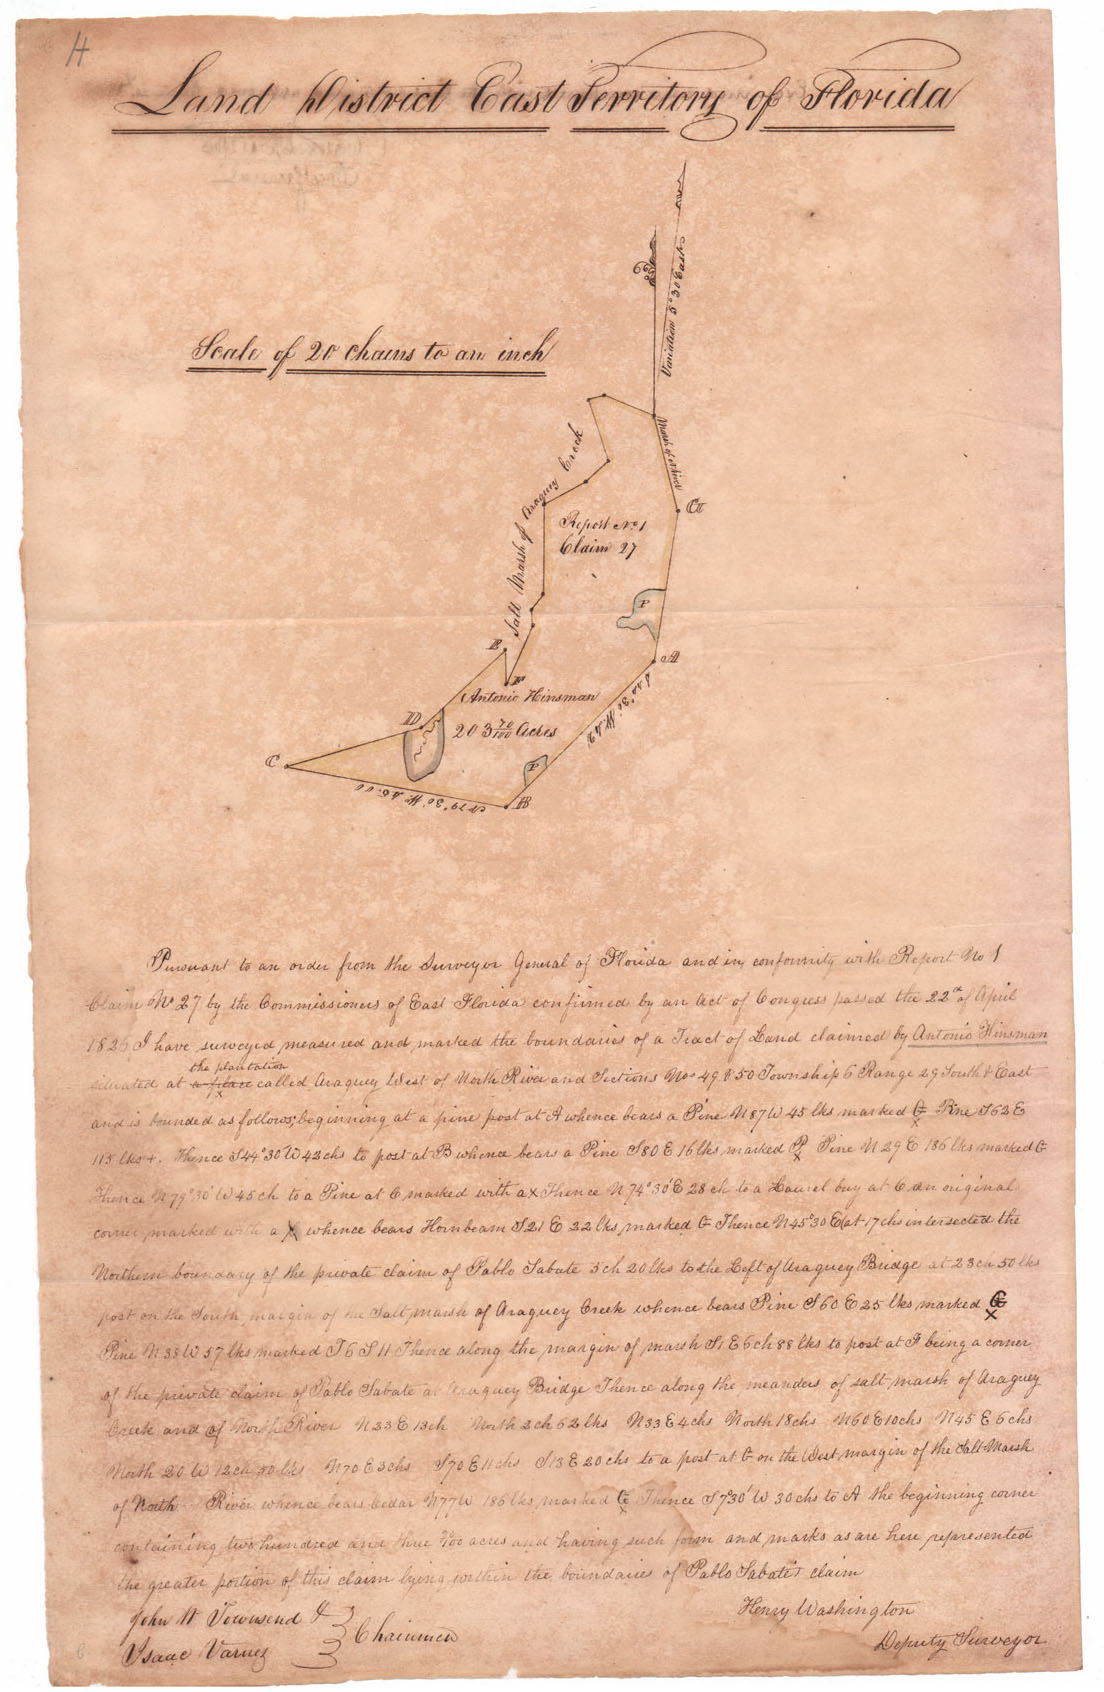 H
Land District East Territory of Florida
Variation 5°30 East
Scale of 20 chains to an inch
Salt Marsh of Araguey Creek
Marsh of N River
G
Report No 1
Claim 27
P
E
F
A
Antonio Hinsman
D
203 70/100 Acres
S 44° 30' W. 42
C
P
B
N 79° 30' W. 45.00
Pursuant to an order from the Surveyor General of Florida and in conformity with Report No 1
Claim No 27 by the Commissioners of East Florida confirmed by an Act of Congress passed the 22d of April
I have surveyed, measured and marked the boundaries of a Tract of Land claimed by Antonio Hinsman
the plantation
situated at a place called Araguey West of North River and Sections Nos 49 & 50 Township 6 Range 29 South & East
and is bounded as follows; beginning at a pine post at A whence bears a Pine N 87 W 45 lks marked G Pine S 62 E
115 lks +. Thence S 44°30' W 42 chs to post at B whence bears a Pine S 80 E 16 lks marked P Pine N 29 E 186 lks marked G
Thence N 79°30' W 45 ch to a Pine at C marked with a X Thence N 74°30' E 28 ch to a Laurel bay at an original
corner marked with a X whence bears Hornbeam S 21 E 22 lks, marked G Thence N 45°30 E (at 17 chs intersected the
Northern boundary of the private claim of Pablo Sabate 5 ch 20 lks to the Left of Araguey Bridge at 23 ch 50 lks
post on the South margin of the Salt marsh of Araguey Creek whence bears Pine S 60 E 25 lks marked G
Pine N 38 W 57 lks marked T 6 S 11 Thence along the margin of marsh S 1 E 6 ch 88 lks to post at F being a corner
of the private claim of Pablo Sabate at Araguey Bridge Thence along the meanders of salt marsh of Araguey
Creek and of North River N 23 E 13 ch North 2 ch 62 lks N 33 E 4 chs North 18 chs N 60 E 10 chs N 45 E 6 chs
North 20 W 12 ch 50 lks N 70 E 3 chs S 70 E 11 chs S 13 E 20 chs to a post at G on the West margin of the Salt Marsh
of North River whence bears Cedar N 77 W 186 lks, marked G Thence S 7°30' W 30 chs to A the beginning corner
containing two hundred and three 70/100 acres and having such form and marks as are here represented
the greater portion of this claim lying within the boundaries of Pablo Sabate's claim
John W Townsend &
Isaac Varnes
Chainmen
Henry Washington
Deputy Surveyor